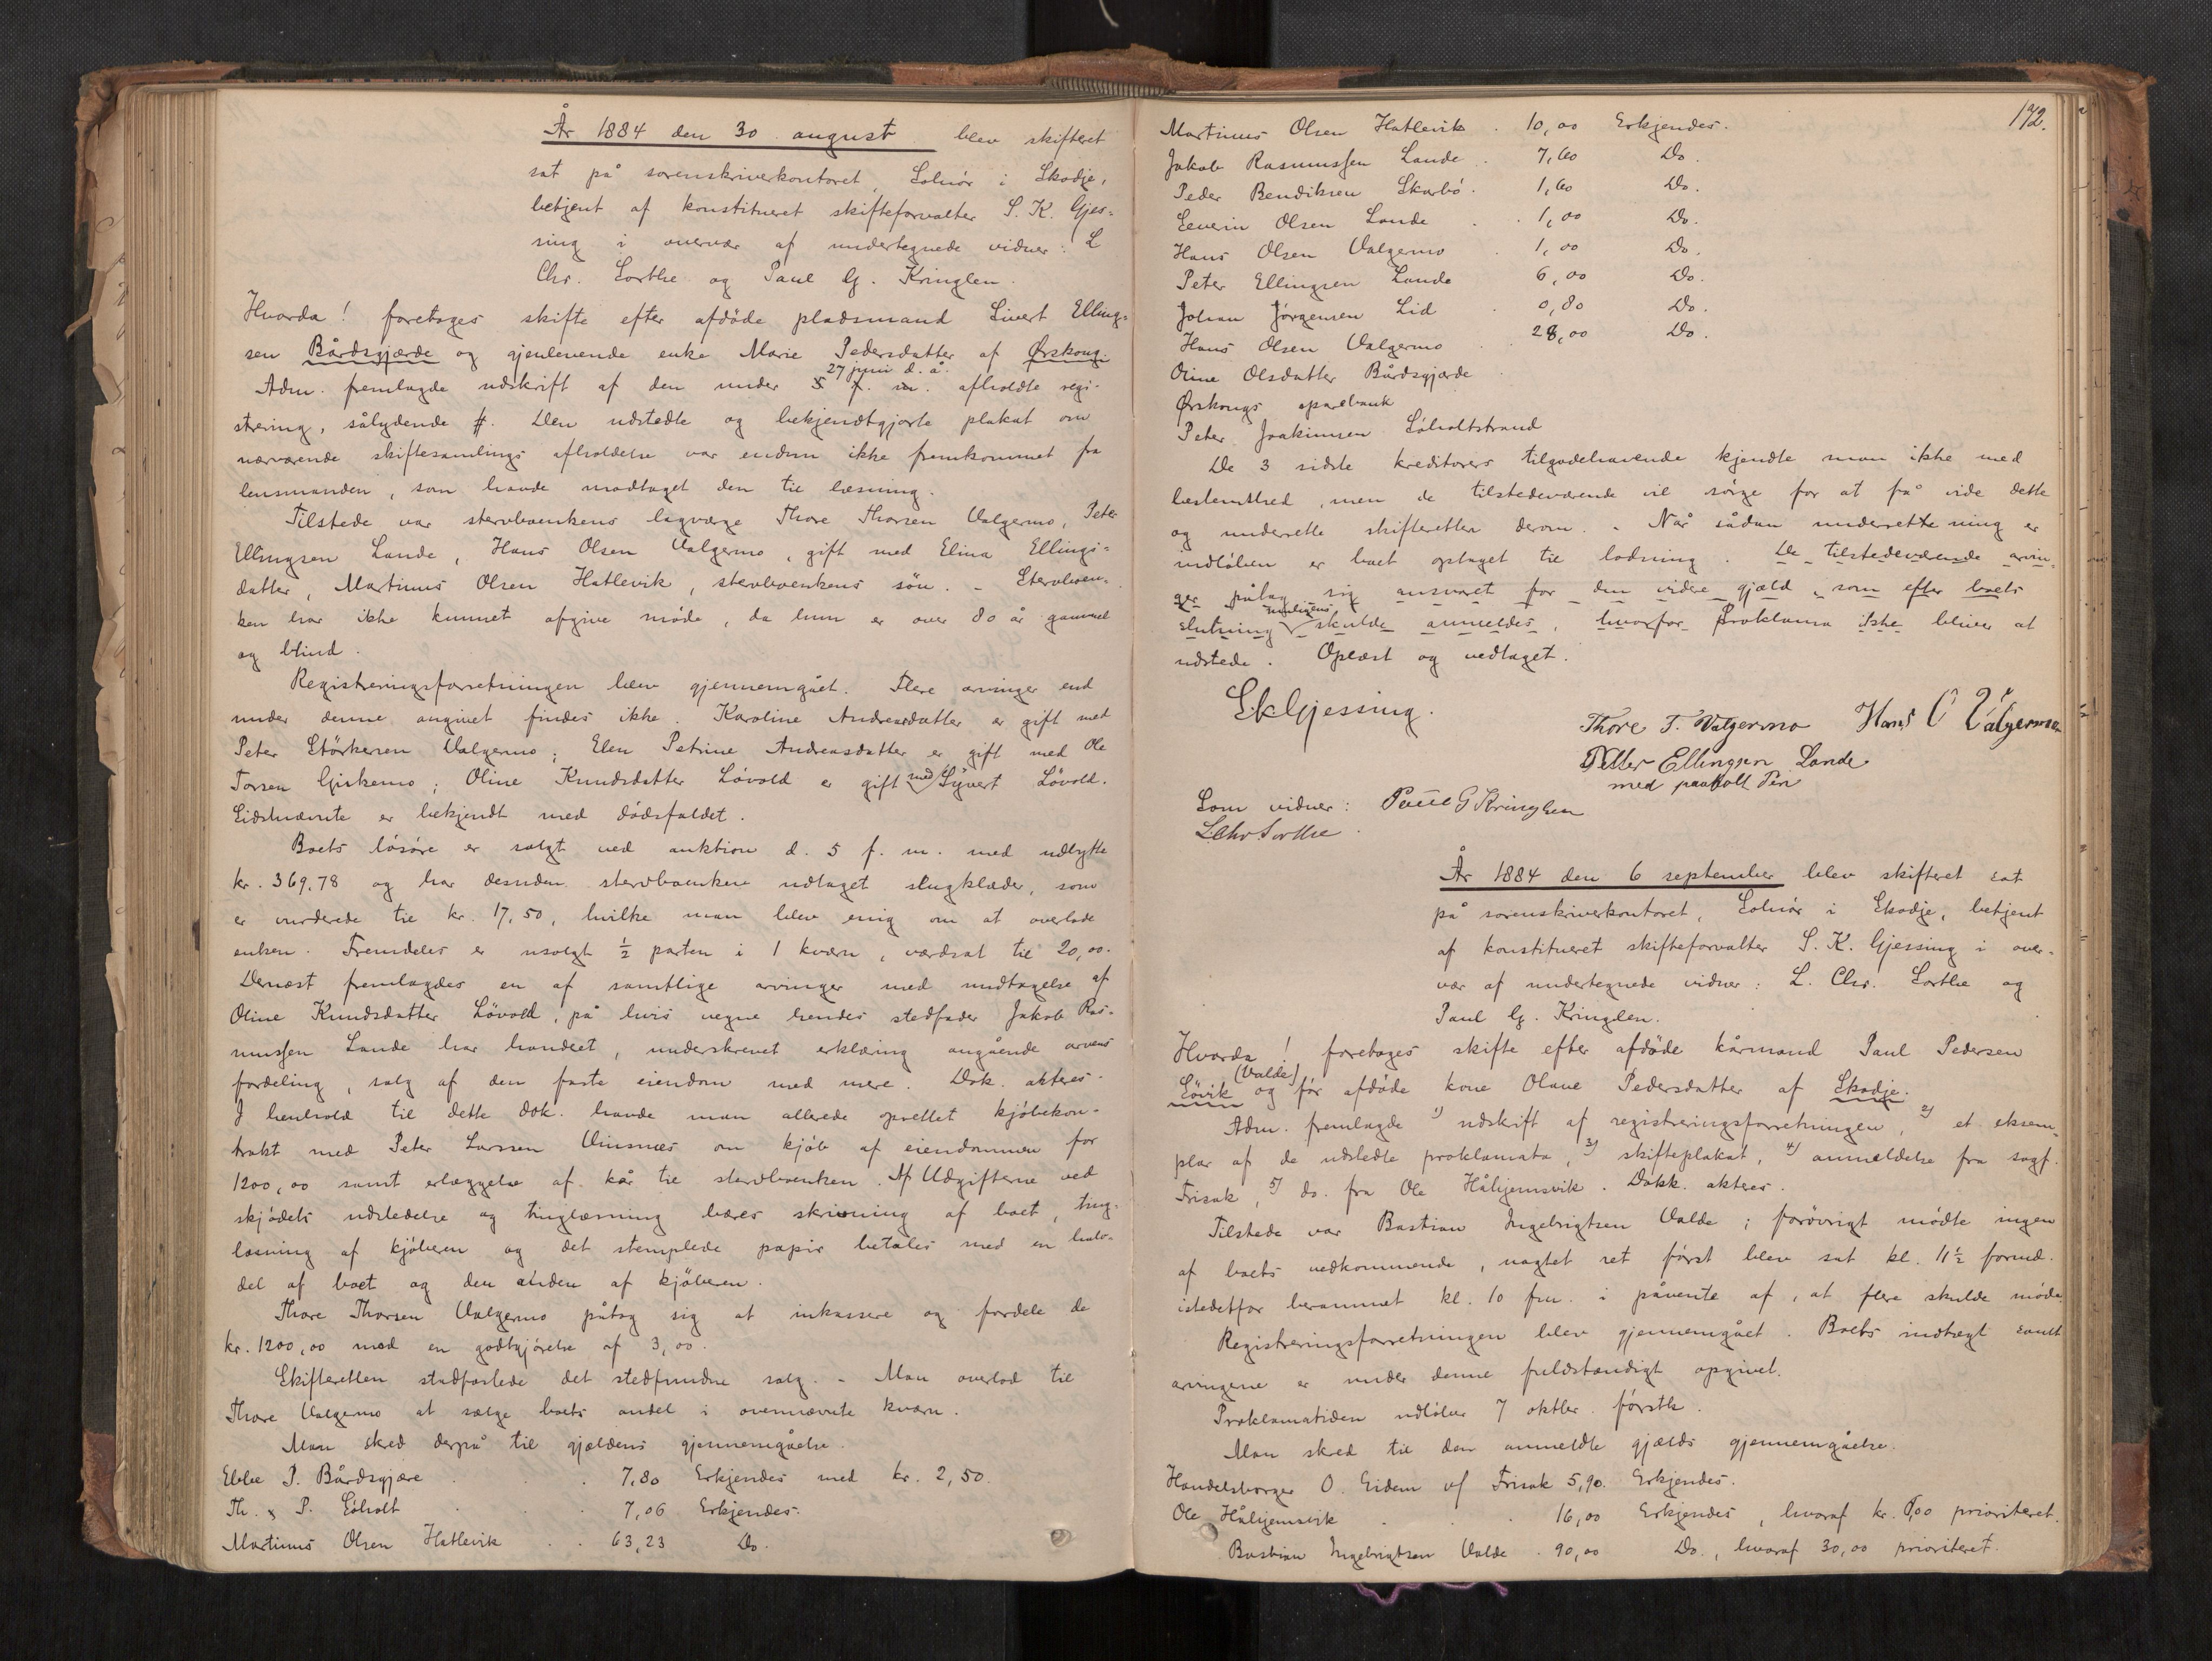 År 1884 den 30 august blev skifteret
sat på sorenskriverkontoret, Solnør i Skodje,
betjent af konstitueret skifteforvalter S. K. Gjes-
sing i overvær af undertegnede vidner: L
Chr. Sorthe og Paul G. Kringlen.
Hvorda! foretoges skifte efter afdöde pladsmand Sivert Elling-
sen Bårdsgjærde og gjenlevende enke Marie Pedersdatter af Ørskoug.
27 juni d. å.
Adm. fremlagde udskrift af den under 5 f. m. afholdte regi-
strering, sålydende #. Den udstedte og bekjendtgjorte plakat om
nærværende skiftesamlings afholdelse var endnu ikke fremkommet fra
lensmanden, som havde modtaget den til læsning.
Tilstede var stervboenkens lagværge Thore Thorsen Valgermo, Peter
Ellingsen Lande, Hans Olsen Valgermo, gift med Elina Ellings-
datter, Martinus Olsen Hatlevik, stervboenkens sön. - Stervboen-
ken har ikke kunnet afgive möde, da hun er over 80 år gammel
og blind.
Registreringsforretningen blev gjennemgået. Flere arvinger end
under denne angivet findes ikke. Karoline Andreasdatter er gift med
Peter Störkersen Valgermo; Elen Petrine Andreasdatter er gift med Ole
Torsen Gjirkemo; Oline Knudsdatter Lövold er gift med Syvert Lövold.
Sidstnævnte er bekjendt med dödsfaldet.
Boets lösöre er solgt ved auktion d. 5 f. m. med udbytte
kr. 369,78 og har desuden stervboenken udtaget slugklæder, som
er vurderede til kr. 17,50, hvilke man blev enig om at overlade
enken. Fremdeles er usolgt ½ parten i 1 kværn, værdsat til 20,00.
Dernæst fremlagdes en af samtlige arvinger med undtagelse af
Oline Knudsdatter Lövold, på hvis vegne hendes stedfader Jakob Ras-
mussen Lande har handlet, underskrevet erklæring angående arvens
fordeling, salg af den faste eiendom med mere. Dok. akteres.
I henhold til dette dok. havde man allerede oprettet kjöbekon-
trakt med Peter Larssen Vinsnæs om kjöb af eiendommen for
1200,00 samt erlæggelse af kår til stervboenken. Af Udgifterne ved
skjödets udstedelse og tinglæsning bæres skrivning af boet, ting-
læsning af kjöberen og det stemplede papir betales med en halv-
del af boet og den anden af kjöberen.
Thore Thorsen Valgermo påtog sig at inkassere og fordele de
kr. 1200,00 mod en godtgjörelse af 3,00.
Skifteretten stadfæstede det stedfundne salg. - Man overlod til
Thore Valgermo at sælge boets andel i ovennævnte kværn.
Man skred derpå til gjældens gjennemgåelse.
Ebbe P. Bårdsgjære . . 7,80 Erkjendes med kr. 2,50.
Th. & P. Söholt . . 7,06 Erkjendes.
Martinus Olsen Hatlevik . . 63,23 Do.
172.
Martinus Olsen Hatlevik . 10,00 Erkjendes.
Jakob Rasmussen Lande . 7,60 Do.
Peder Bendiksen Skarbö . 1,60 Do.
Severin Olsen Lande . . 1,00 Do.
Hans Olsen Valgermo . 1,00 Do.
Peter Ellingsen Lande 6,00 Do.
Johan Jörgensen Lid . 0,80 Do.
Hans Olsen Valgermo . 28,00 Do.
Oline Olsdatter Bårdsgjærde .
Ørskougs sparebank
Peter Joakimsen Söholtstrand
De 3 sidste kreditorers tilgodehavende kjendte man ikke med
bestemthed, men de tilstedeværende vil sörge for at få vide dette
og underrette skifteretten derom. - Når sådan underretning er
indlöben er boet optaget til lodning. De tilstedeværende arvin-
ger påtog sig ansvaret for den videre gjæld, som efter boets
muligens
slutning skulde anmeldes, hvorfor Proklama ikke bliver at
udstede. Oplæst og vedtaget.
SKGjessing.
Thore T. Valgermo Hans O Valgermo
Petter Ellingsen Lande
med paaholt Pen
Som vidner: Paul G Kringlen
LChrSorthe.
År 1884 den 6 september blev skifteret sat
på sorenskriverkontoret, Solnör i Skodje, betjent
af konstitueret skifteforvalter S. K. Gjessing i over-
vær af undertegnede vidner: L. Chr. Sorthe og
Paul G. Kringlen.
Hvorda! foretoges skifte efter afdöde kårmand Paul Pedersen
(Valde)
Sövik og för afdöde kone Olave Pedersdatter af Skodje.
Adm. fremlagde 1) udskrift af registreringsforretningen, 2) et eksem-
plar af de udstedte proklamata, 3) skifteplakat, 4) anmeldelse fra sagf.
Frisak, 5) do. fra Ole Håhjemsvik. Dokk. akteres.
Tilstede var Bastian Ingebrigtsen Valde; forövrigt mödte ingen
af boets vedkommende, uagtet ret först blev sat kl. 11½ formd.
istedetfor berammet kl. 10 fm. i påvente af, at flere skulde möde.
Registreringsforretningen blev gjennemgået. Boets indtægt samt
arvingerne er under denne fuldstændigt opgivet.
Proklamatiden udlöber 7 oktbr. förstk.
Man skred til den anmeldte gjælds gjennemgåelse.
Handelsborger O. Eidem v/ Frisak 5,90. Erkjendes.
Ole Håhjemsvik . . . 16,00 Erkjendes, hvoraf kr. 8,00 prioriteret.
Bastian Ingebrigtsen Valde . 90,00 Do., hvoraf 30,00 prioriteret.